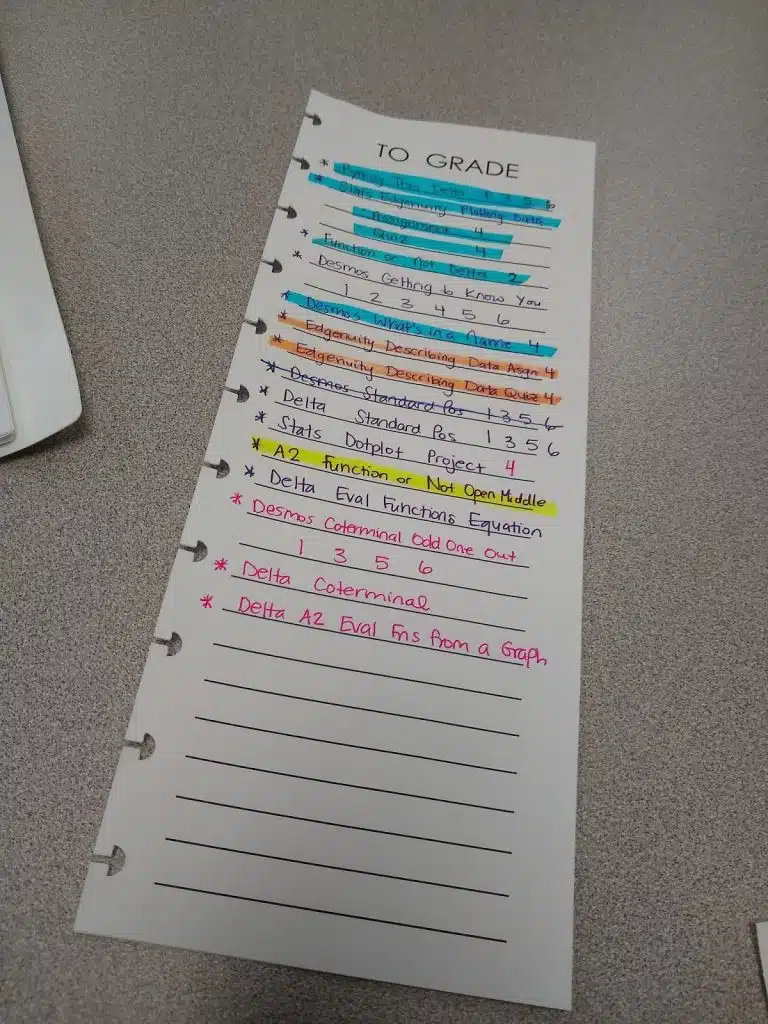 TO GRADE
* Pythag Thm Delta 1 3 5 6
* Stats Edgenuity Plotting Data
- Assignment 4
- Quiz 4
* Function or Not Delta 2
* Desmos Getting to Know You
1 2 3 4 5 6
* Desmos What's in a Name 4
* Edgenuity Describing Data Asgn 4
* Edgenuity Describing Data Quiz 4
* Desmos Standard Pos 1 3 5 6
* Delta Standard Pos 1 3 5 6
* Stats Dotplot Project 4
* A2 Function or Not Open Middle
* Delta Eval Functions Equation
* Desmos Coterminal Odd One Out
1 3 5 6
* Delta Coterminal
* Delta A2 Eval Fns from a Graph